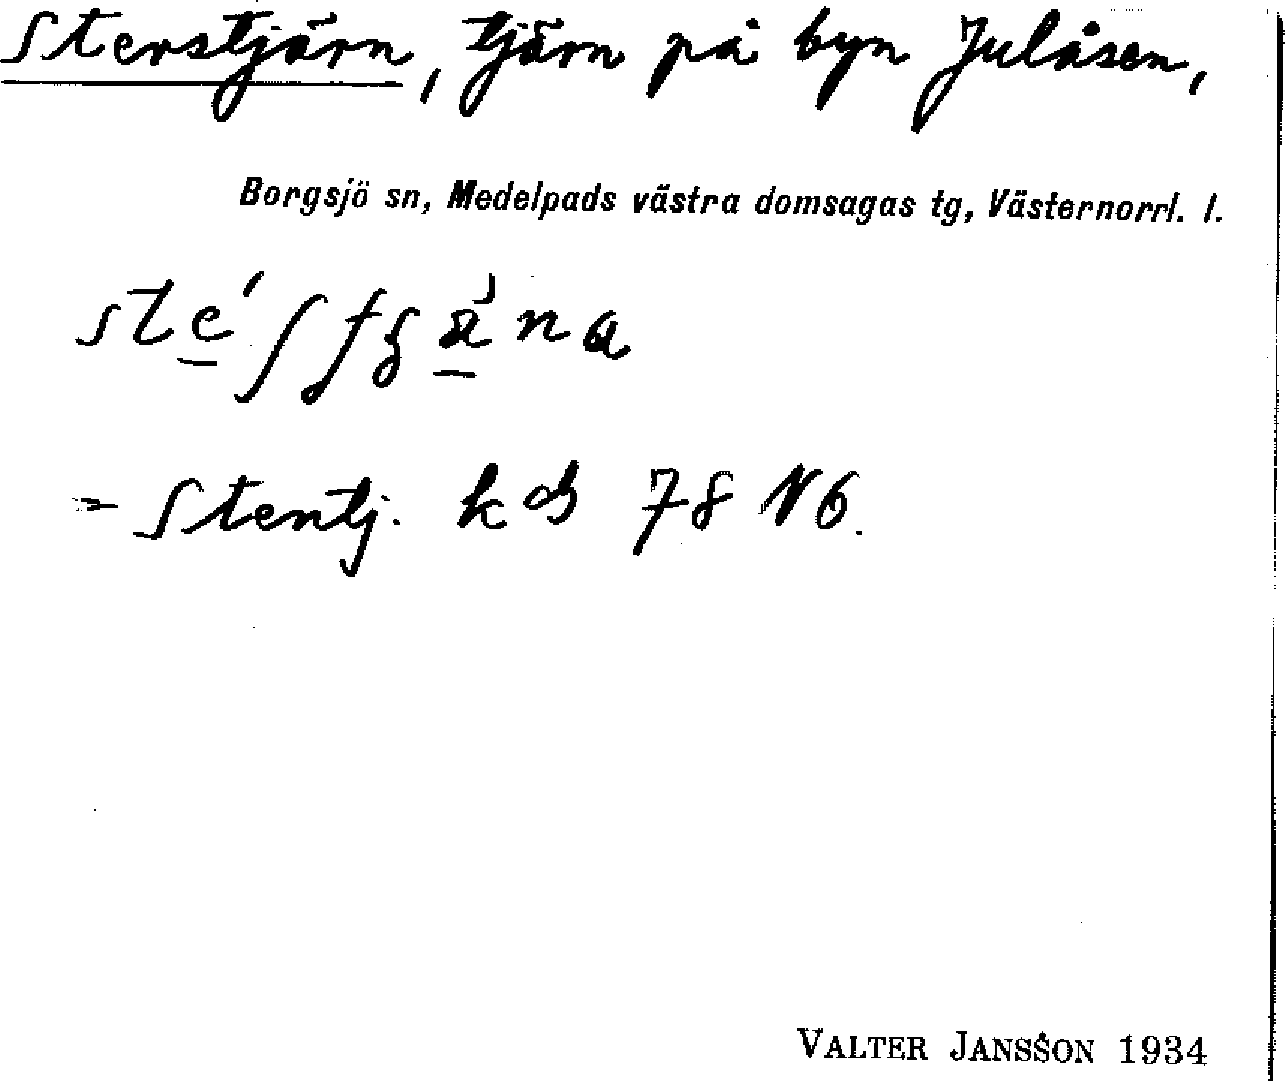 Sterstjärn, tjärn på byn Julåsen,
Borgsjö sn, Medelpads västra domsagas tg, Västernorrl. l.
= Stentj. kbl 78 V6.
VALTER JANSSON 1934